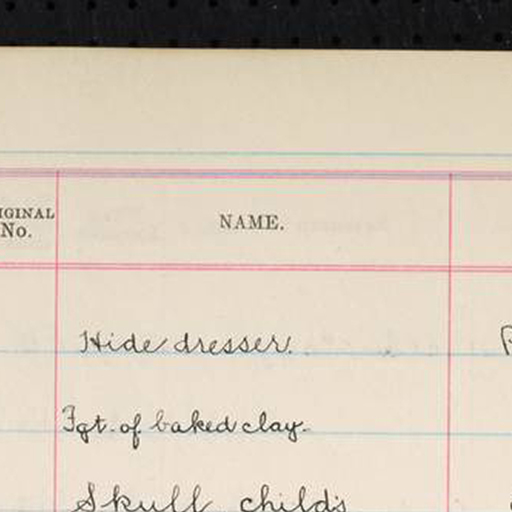 IGINAL No. NAME.
Hide dresser.
Fgt. of baked clay.
Skull child's